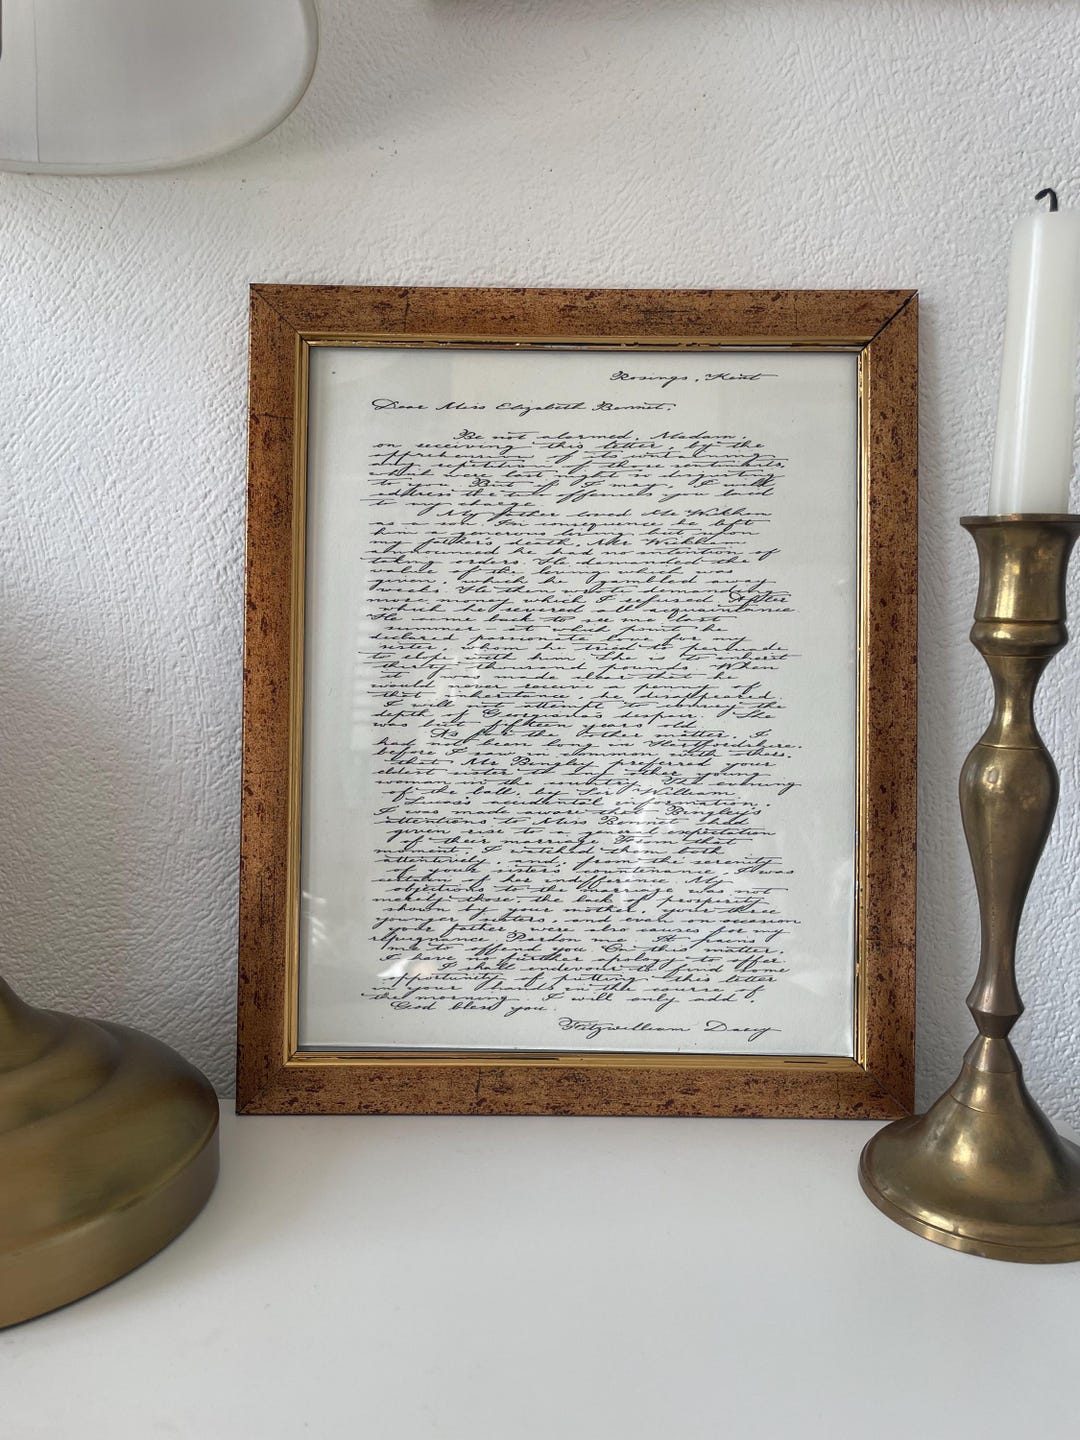 Rosings, Kent
Dear Miss Elizabeth Bennet,
Be not alarmed, Madam,
on receiving this letter, by the
apprehension of its containing
any repetition of those sentiments,
which were last night so disgusting
to you. But if I may, I will
address the two offences you laid
to my charge.
My father loved Mr Wickham
as a son. In consequence he left
him a generous living, but upon
my father's death, Mr Wickham
announced he had no intention of
taking orders. He demanded the
value of the living which was
given, which he gambled away
weeks. He then wrote demanding
more money which I refused. After
which he severed all acquaintance
He came back to see me last
summer at which point he
declared passionate love for my
sister, whom he tried to persuade
to elope with him. She is to inherit
thirty thousand pounds. When
it was made clear that he
would never receive a penny of
that inheritance, he disappeared.
I will not attempt to convey the
depth of Georgiana's despair. She
was but fifteen years old.
As for the other matter, I
had not been long in Hertfordshire,
before I saw in common with others,
that Mr Bingley preferred your
eldest sister to any other young
woman in the country. The evening
of the ball, by Sir William
Lucas's accidental information,
I was made aware that Bingley's
attentions to Miss Bennet had
given rise to a general expectation
of their marriage. From that
moment, I watched them both
attentively, and, from the serenity
of your sister's countenance, I was
certain of her indifference. My
objections to the marriage was not
merely those, the lack of prosperity
shown by your mother, your three
younger sisters, and even on occasion
your father, were also causes for my
repugnance. Pardon me. It pains
me to offend you. On this matter,
I have no further apology to offer.
I shall endevour to find some
opportunity of putting this letter
in your hands in the course of
the morning. I will only add,
God bless you.
Fitzwilliam Darcy